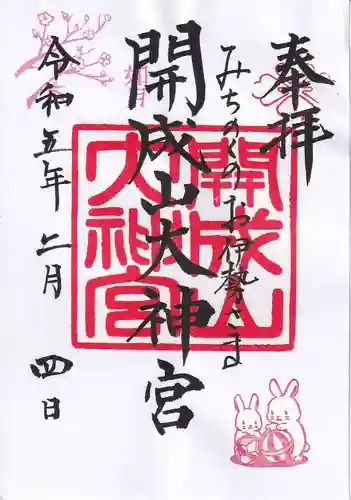 奉拝
みちのくのお伊勢さま
開成山大神宮
開成山
大神宮
令和五年二月四日
如月